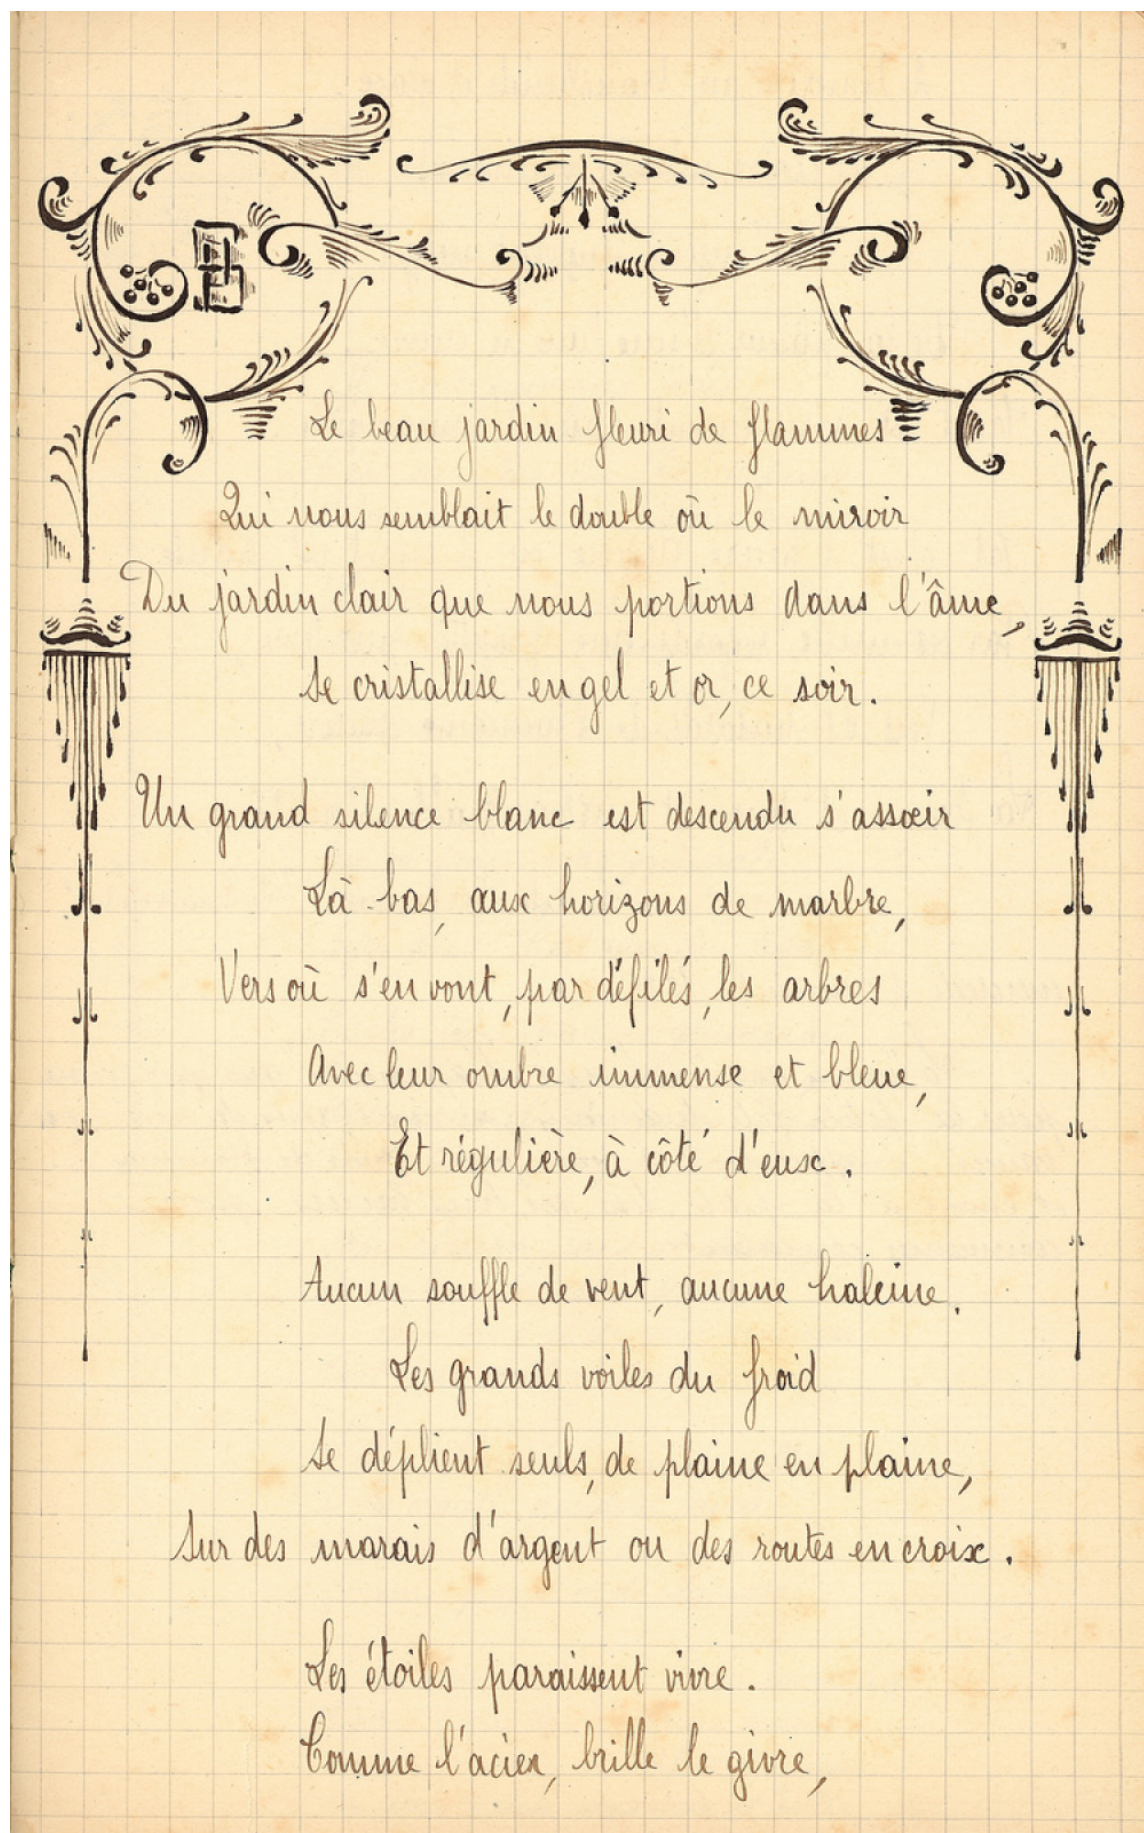 Le beau jardin fleuri de flammes
Qui nous semblait le double où le miroir
Du jardin clair que nous portions dans l'âme,
Se cristallise en gel et or, ce soir.
Un grand silence blanc est descendu s'assoeir
Là-bas, aux horizons de marbre,
Vers où s'en vont, par défilés, les arbres
Avec leur ombre immense et bleue,
Et régulière, à côté d'eux.
Aucun souffle de vent, aucune haleine.
Les grands voiles du froid
Se déplient seuls, de plaine en plaine,
Sur des marais d'argent ou des routes en croix.
Les étoiles paraissent vivre.
Comme l'acier, brille le givre,